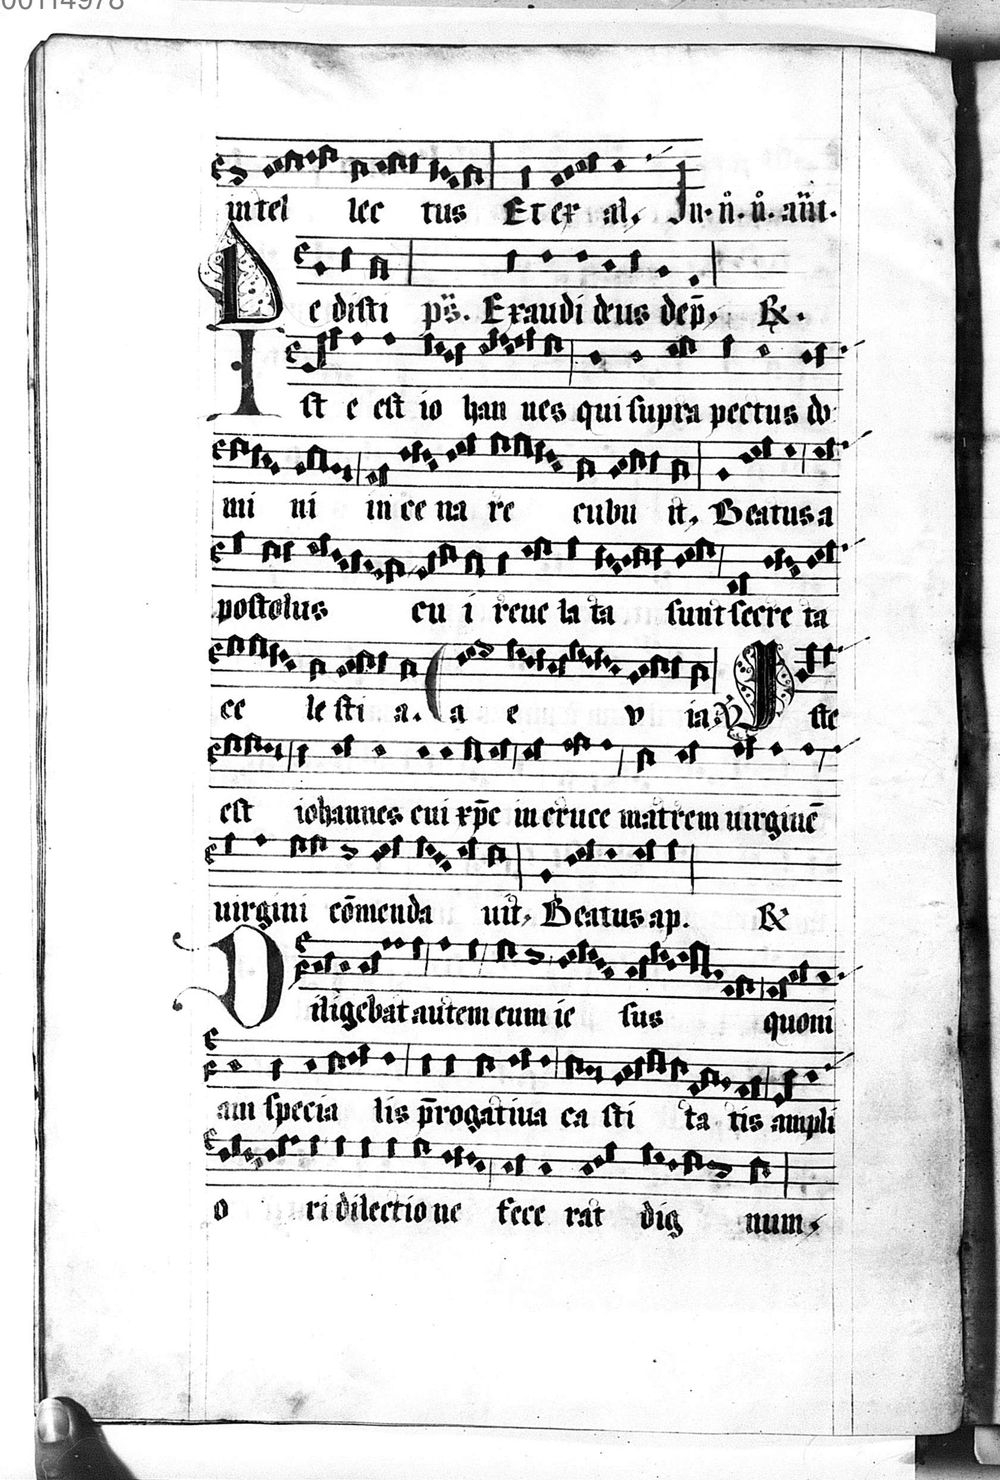 00114978
intel lec tus Et ex al, In. n̊. n̊. aūt.
De disti ps̄. Exaudi deus dep̄, R.
Ist e est io han nes qui supra pectus do
mi ni in ce na re cubu it, Beatus a
postolus cu i reue la ta sunt secre ta
ce le sti a. a e v ia Iste
est iohannes cui xp̄c in cruce matrem uirginē
uirgini cōmenda uit, Beatus ap. R
Diligebat autem eum ie sus quoni
am specia lis p̄rogatiua ca sti ta tis ampli
o ri dilectio ne fece rat dig num,